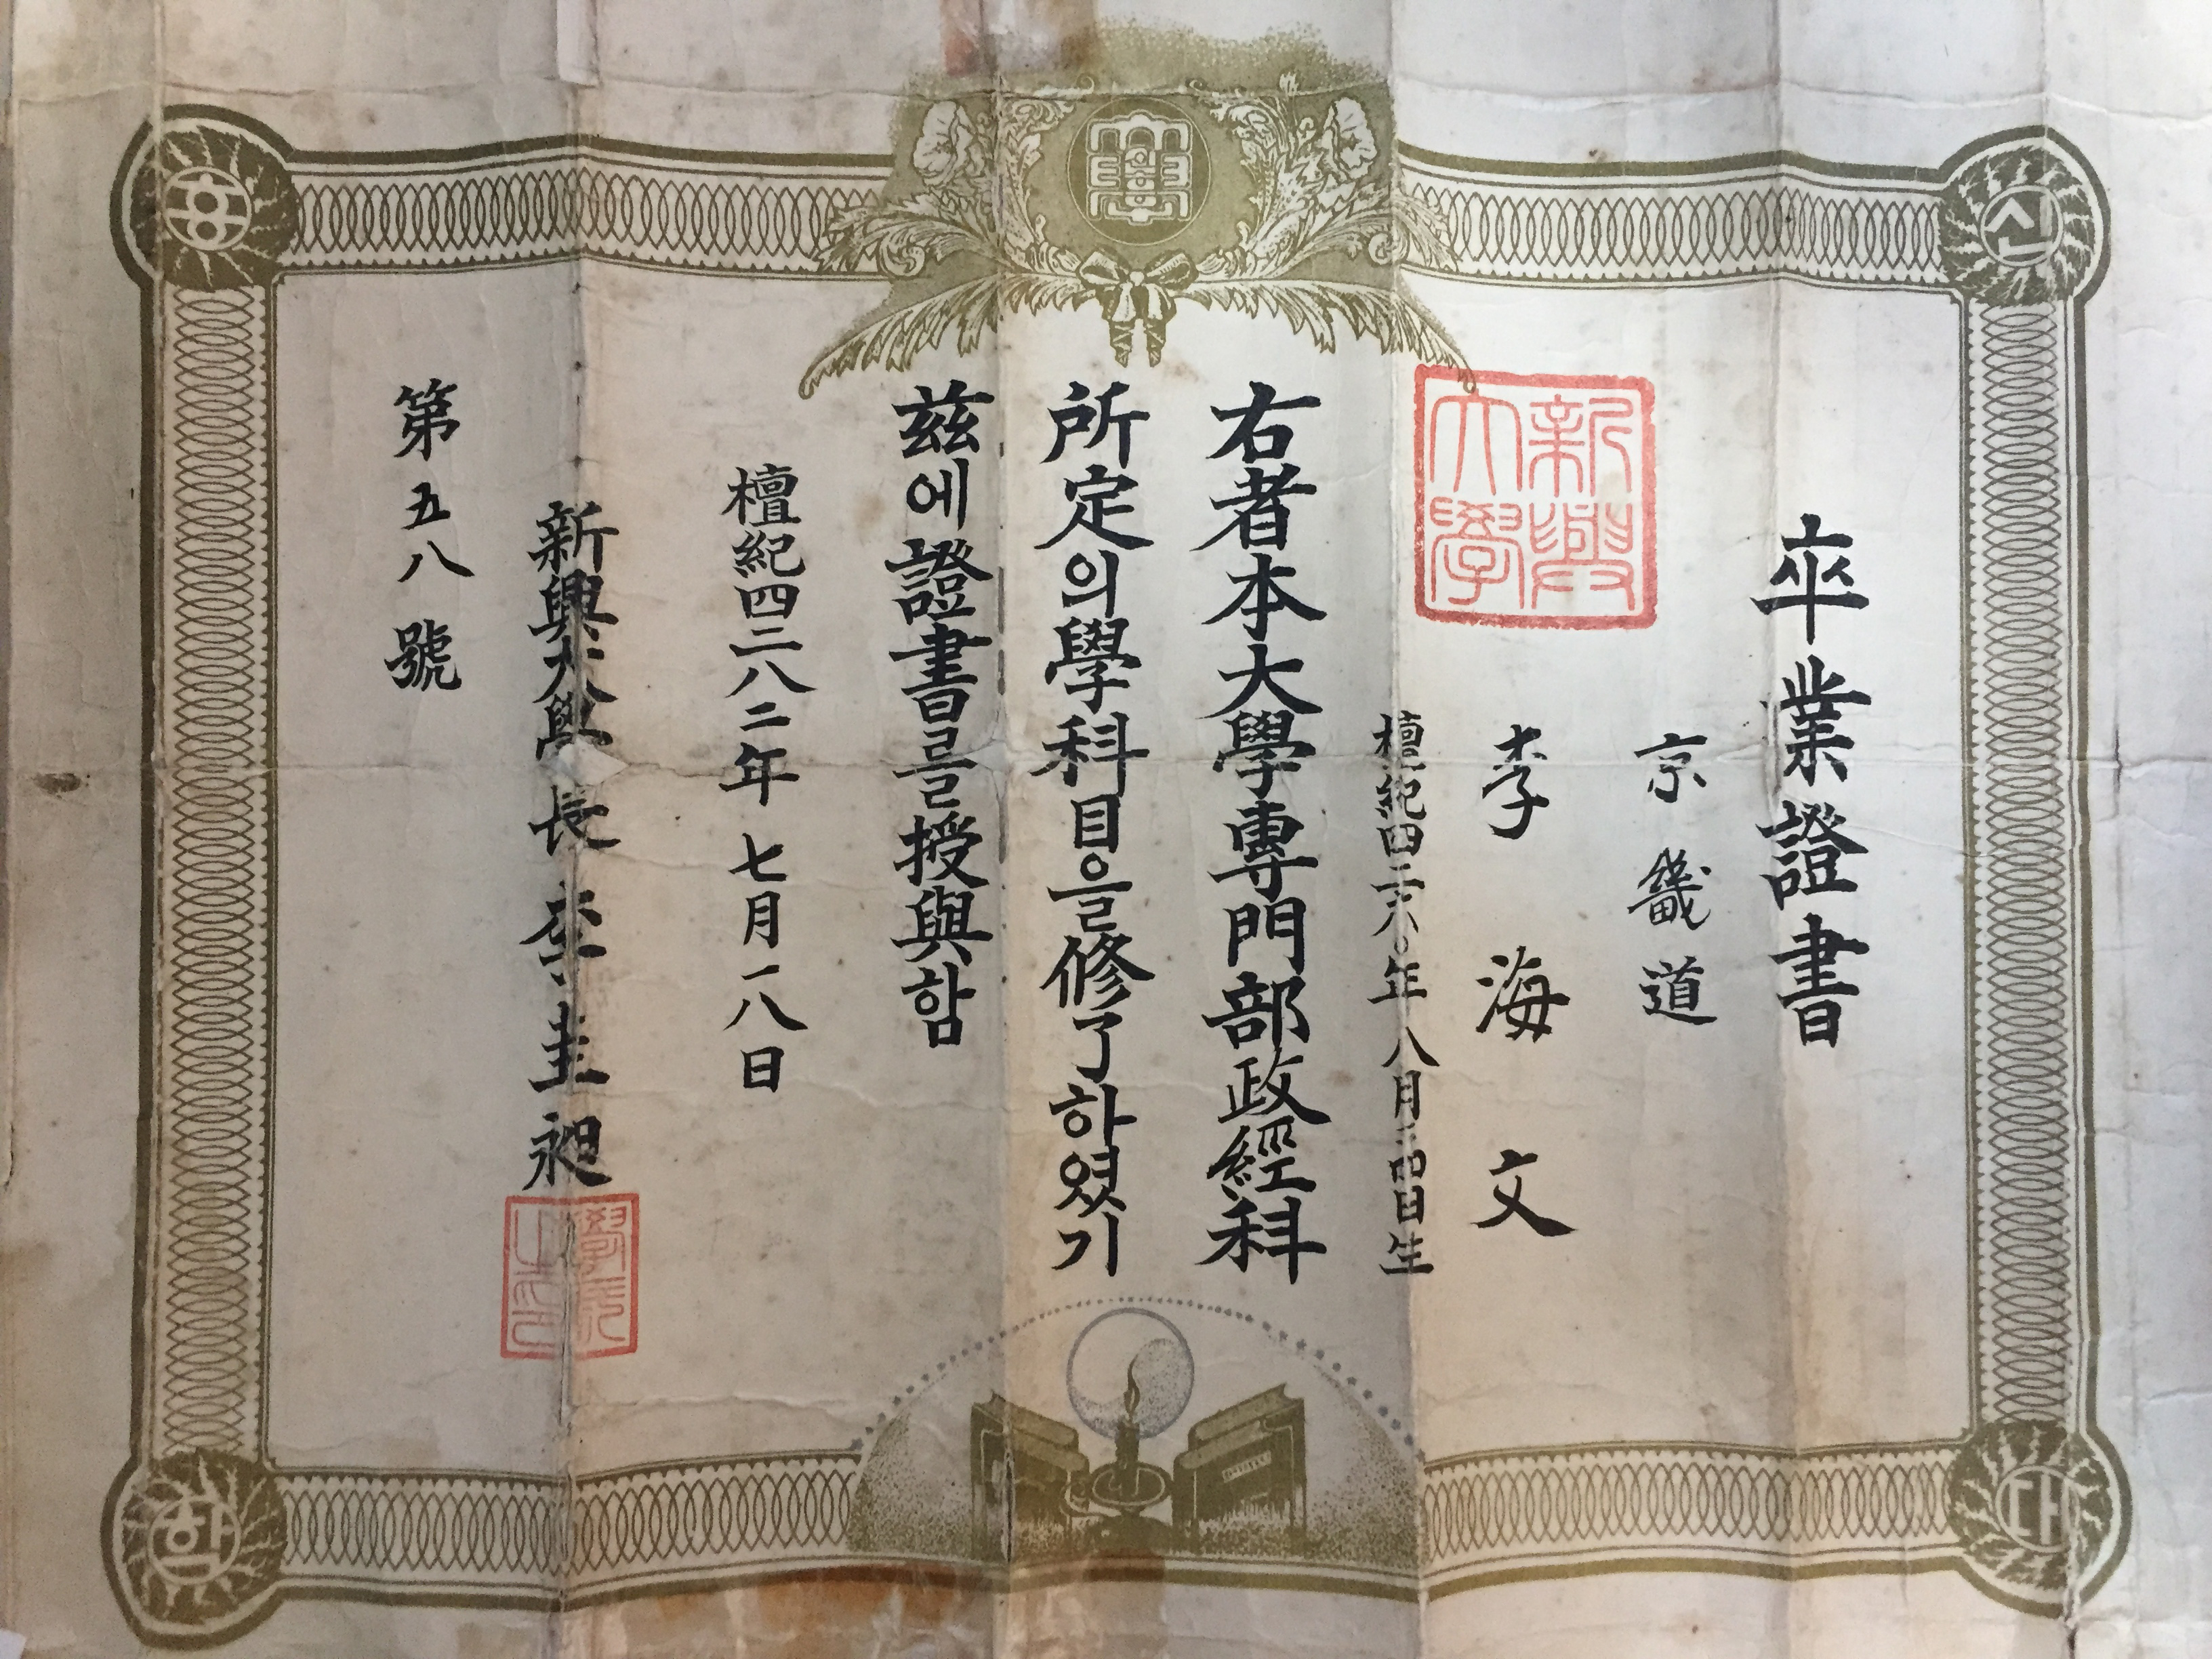 卒業證書
京畿道
李海文
檀紀四二六〇年八月二四日生
右者本大學專門部政經科
所定의學科目을修了하였기
茲에證書를授與함
檀紀四二八二年七月一八日
新興大學長李圭昶
第五八號
新興大學
學長之印
신
흥
대
학